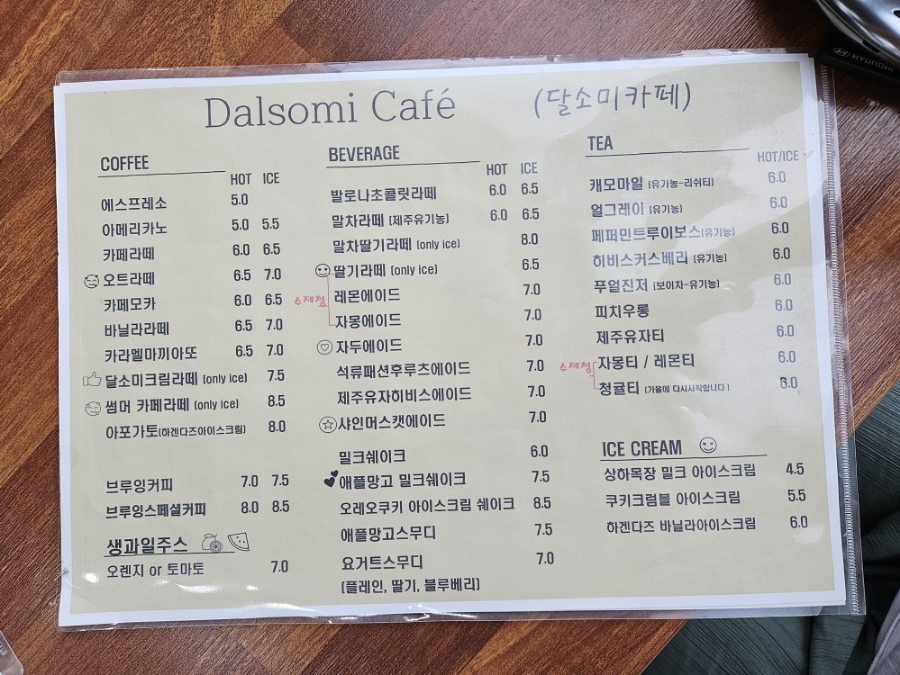 HYUNDAI
Dalsomi Café (달소미카페)
COFFEE
HOT ICE
에스프레소 5.0
아메리카노 5.0 5.5
카페라떼 6.0 6.5
오트라떼 6.5 7.0
카페모카 6.0 6.5
바닐라라떼 6.5 7.0
카라멜마끼아또 6.5 7.0
달소미크림라떼 (only ice) 7.5
썸머 카페라떼 (only ice) 8.5
아포가토(하겐다즈아이스크림) 8.0
브루잉커피 7.0 7.5
브루잉스페셜커피 8.0 8.5
생과일주스
오렌지 or 토마토 7.0
BEVERAGE
HOT ICE
발로나초콜릿라떼 6.0 6.5
말차라떼 (제주유기농) 6.0 6.5
말차딸기라떼 (only ice) 8.0
딸기라떼 (only ice) 6.5
레몬에이드 7.0
수제청
자몽에이드 7.0
자두에이드 7.0
석류패션후루츠에이드 7.0
제주유자히비스에이드 7.0
샤인머스캣에이드 7.0
밀크쉐이크 6.0
애플망고 밀크쉐이크 7.5
오레오쿠키 아이스크림 쉐이크 8.5
애플망고스무디 7.5
요거트스무디 7.0
(플레인, 딸기, 블루베리)
TEA
HOT/ICE
캐모마일 (유기농-리쉬티) 6.0
얼그레이 (유기농) 6.0
페퍼민트루이보스(유기농) 6.0
히비스커스베리 (유기농) 6.0
푸얼진저 (보이차-유기농) 6.0
피치우롱 6.0
제주유자티 6.0
수제청 자몽티 / 레몬티 6.0
청귤티 (가을에 다시시작합니다) 6.0
ICE CREAM
상하목장 밀크 아이스크림 4.5
쿠키크럼블 아이스크림 5.5
하겐다즈 바닐라아이스크림 6.0